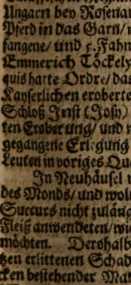 Ungarn bey Rosenau
Pferd in das Garn/
fangene/ und 5. Fahn
Emmerich Töckely
quis harte Ordre/ das
Kayserlichen erobert
Schloß Jnst (Josn)
ten Eroberung/ und
gegangene
Leuten in voriges Qu
Jn Neuhäusel
des Monds/ und wol
Succurs nicht zuläng
Fleiß anwendeten/
möchten. Derohalb
tzen erlittenen Schad
cken bestehender Ma